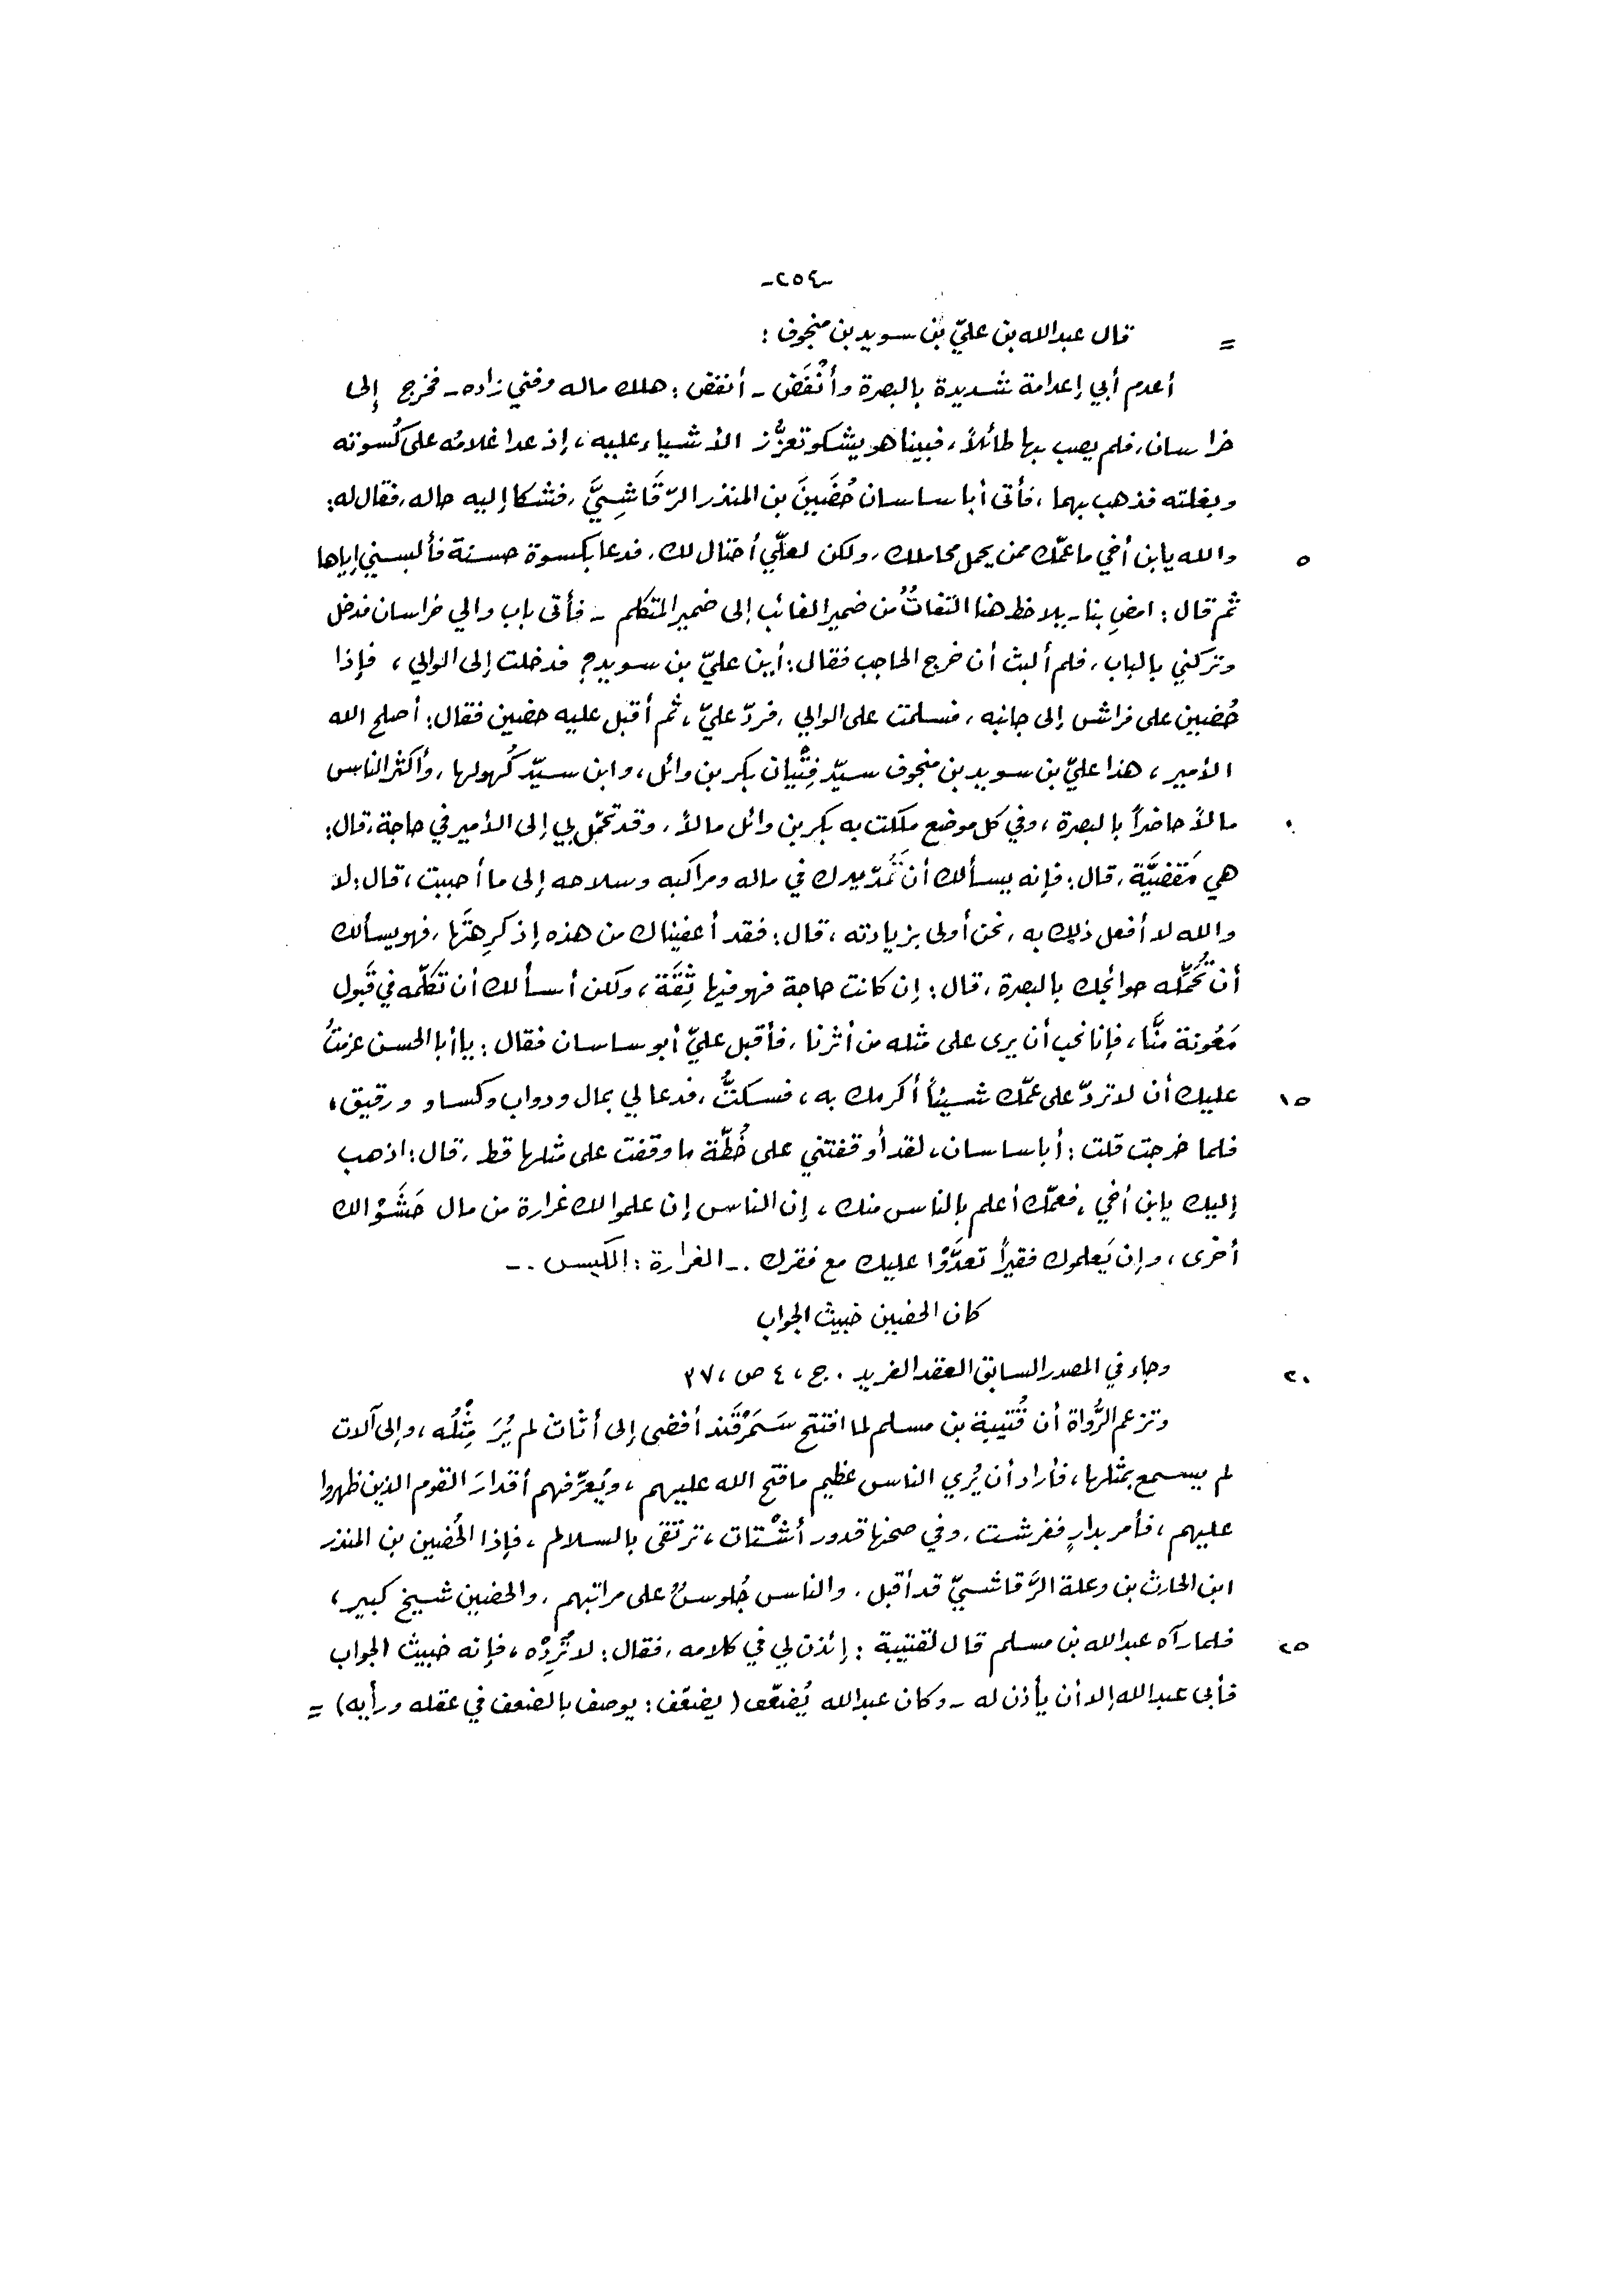 -٢٥٤-
= قال عبدالله بن عليّ بن سويد بن منجوف :
أعدم أبي إعدامة شديدة بالبصرة وأنْفَضَ - أنفض : هلك ماله وفني زاده - فخرج إلى
خراسان، فلم يصب بها طائلاً، فبينا هو يشكو تعزُّز الأشياء عليه، إذ عدا غلامُه على كُسوته
وبغلته فذهب بهما، فأتى أبا ساسان حُضَينَ بن المنذر الرّقَاشِيَّ، فشكا إليه حاله، فقال له:
٥ والله يابن أخي ما عمّك ممن يحمل محاملك، ولكن لعلّي أحتال لك، فدعا بكسوة حسنة فألبسني إياها
ثم قال : امضِ بنا - يلاحظ هنا التفاتٌ من ضمير الغائب إلى ضمير المتكلم - فأتى باب والي خراسان فدخل
وتركني بالباب، فلم ألبث أن خرج الحاجب فقال: أين عليّ بن سويد؟ فدخلت إلى الوالي، فإذا
حُضين على فراش إلى جانبه، فسلمت على الوالي، فردّ عليّ، ثم أقبل عليه حضين فقال: أصلح الله
الأمير، هذا عليّ بن سويد بن منجوف سيّد فِتْيان بكر بن وائل، وابن سيّد كُهولها، وأكثر الناس
١٠ مالاً حاضراً بالبصرة، وفي كل موضع ملكت به بكر بن وائل مالاً، وقد تحمّل بي إلى الأمير في حاجة، قال:
هي مَقضيَّة، قال: فإنه يسألك أن تَمُدّ يدك في ماله ومراكبه وسلاحه إلى ما أحببت، قال: لا
والله لا أفعل ذلك به، نحن أولى بزيادته، قال: فقد أعفيناك من هذه إذ كرِهتَها، فهو يسألك
أن تُحَمِّله حوائجك بالبصرة، قال: إن كانت حاجة فهو فيها ثِقَة، ولكن أسألك أن تكلّمه في قَبول
مَعُونة منَّا، فإنا نحب أن يرى على مثله من أثرنا، فأقبل عليّ أبو ساسان فقال : يا أبا الحسن عزمتُ
١٥ عليك أن لا تردّ على عمّك شيئاً أكرمك به، فسكتُّ، فدعا لي بمال ودواب وكساو ورقيق،
فلما خرجت قلت : أبا ساسان، لقد أوقفتني على خُطّة ما وقفت على مثلها قط، قال: اذهب
إليك يابن أخي، فعمّك أعلم بالناس منك، إن الناس إن علموا لك غرارة من مال حَشَوْا لك
أخرى، وإن يَعلموك فقيراً تعدَّوْا عليك مع فقرك .- الغرارة : الكيس .-
كان الحضين خبيث الجواب
٢٠ وجاء في المصدر السابق العقد الفريد . ج، ٤ ص، ٣٧
وتزعم الرُّواة أن قُتيبة بن مسلم لما افتتح سَمَرْقَند أفضى إلى أثاث لم يُرَ مِثْلُه، وإلى آلات
لم يسمع بمثلها، فأراد أن يُري الناس عظيم ما فتح الله عليهم، ويُعرِّفهم أقدارَ القوم الذين ظهروا
عليهم، فأمر بدارٍ ففرشت، وفي صحنها قدور أشْتات، ترتقى بالسلالم، فإذا الحُضين بن المنذر
ابن الحارث بن وعلة الرَّقاشيّ قد أقبل، والناس جُلوسٌ على مراتبهم، والحضين شيخ كبير،
٢٥ فلما رآه عبدالله بن مسلم قال لقتيبة : إئذن لي في كلامه، فقال: لا تُرِدْه، فإنه خبيث الجواب
فأبى عبدالله إلا أن يأذن له - وكان عبدالله يُضَعَّف ( يضعّف : يوصف بالضعف في عقله ورأيه) =